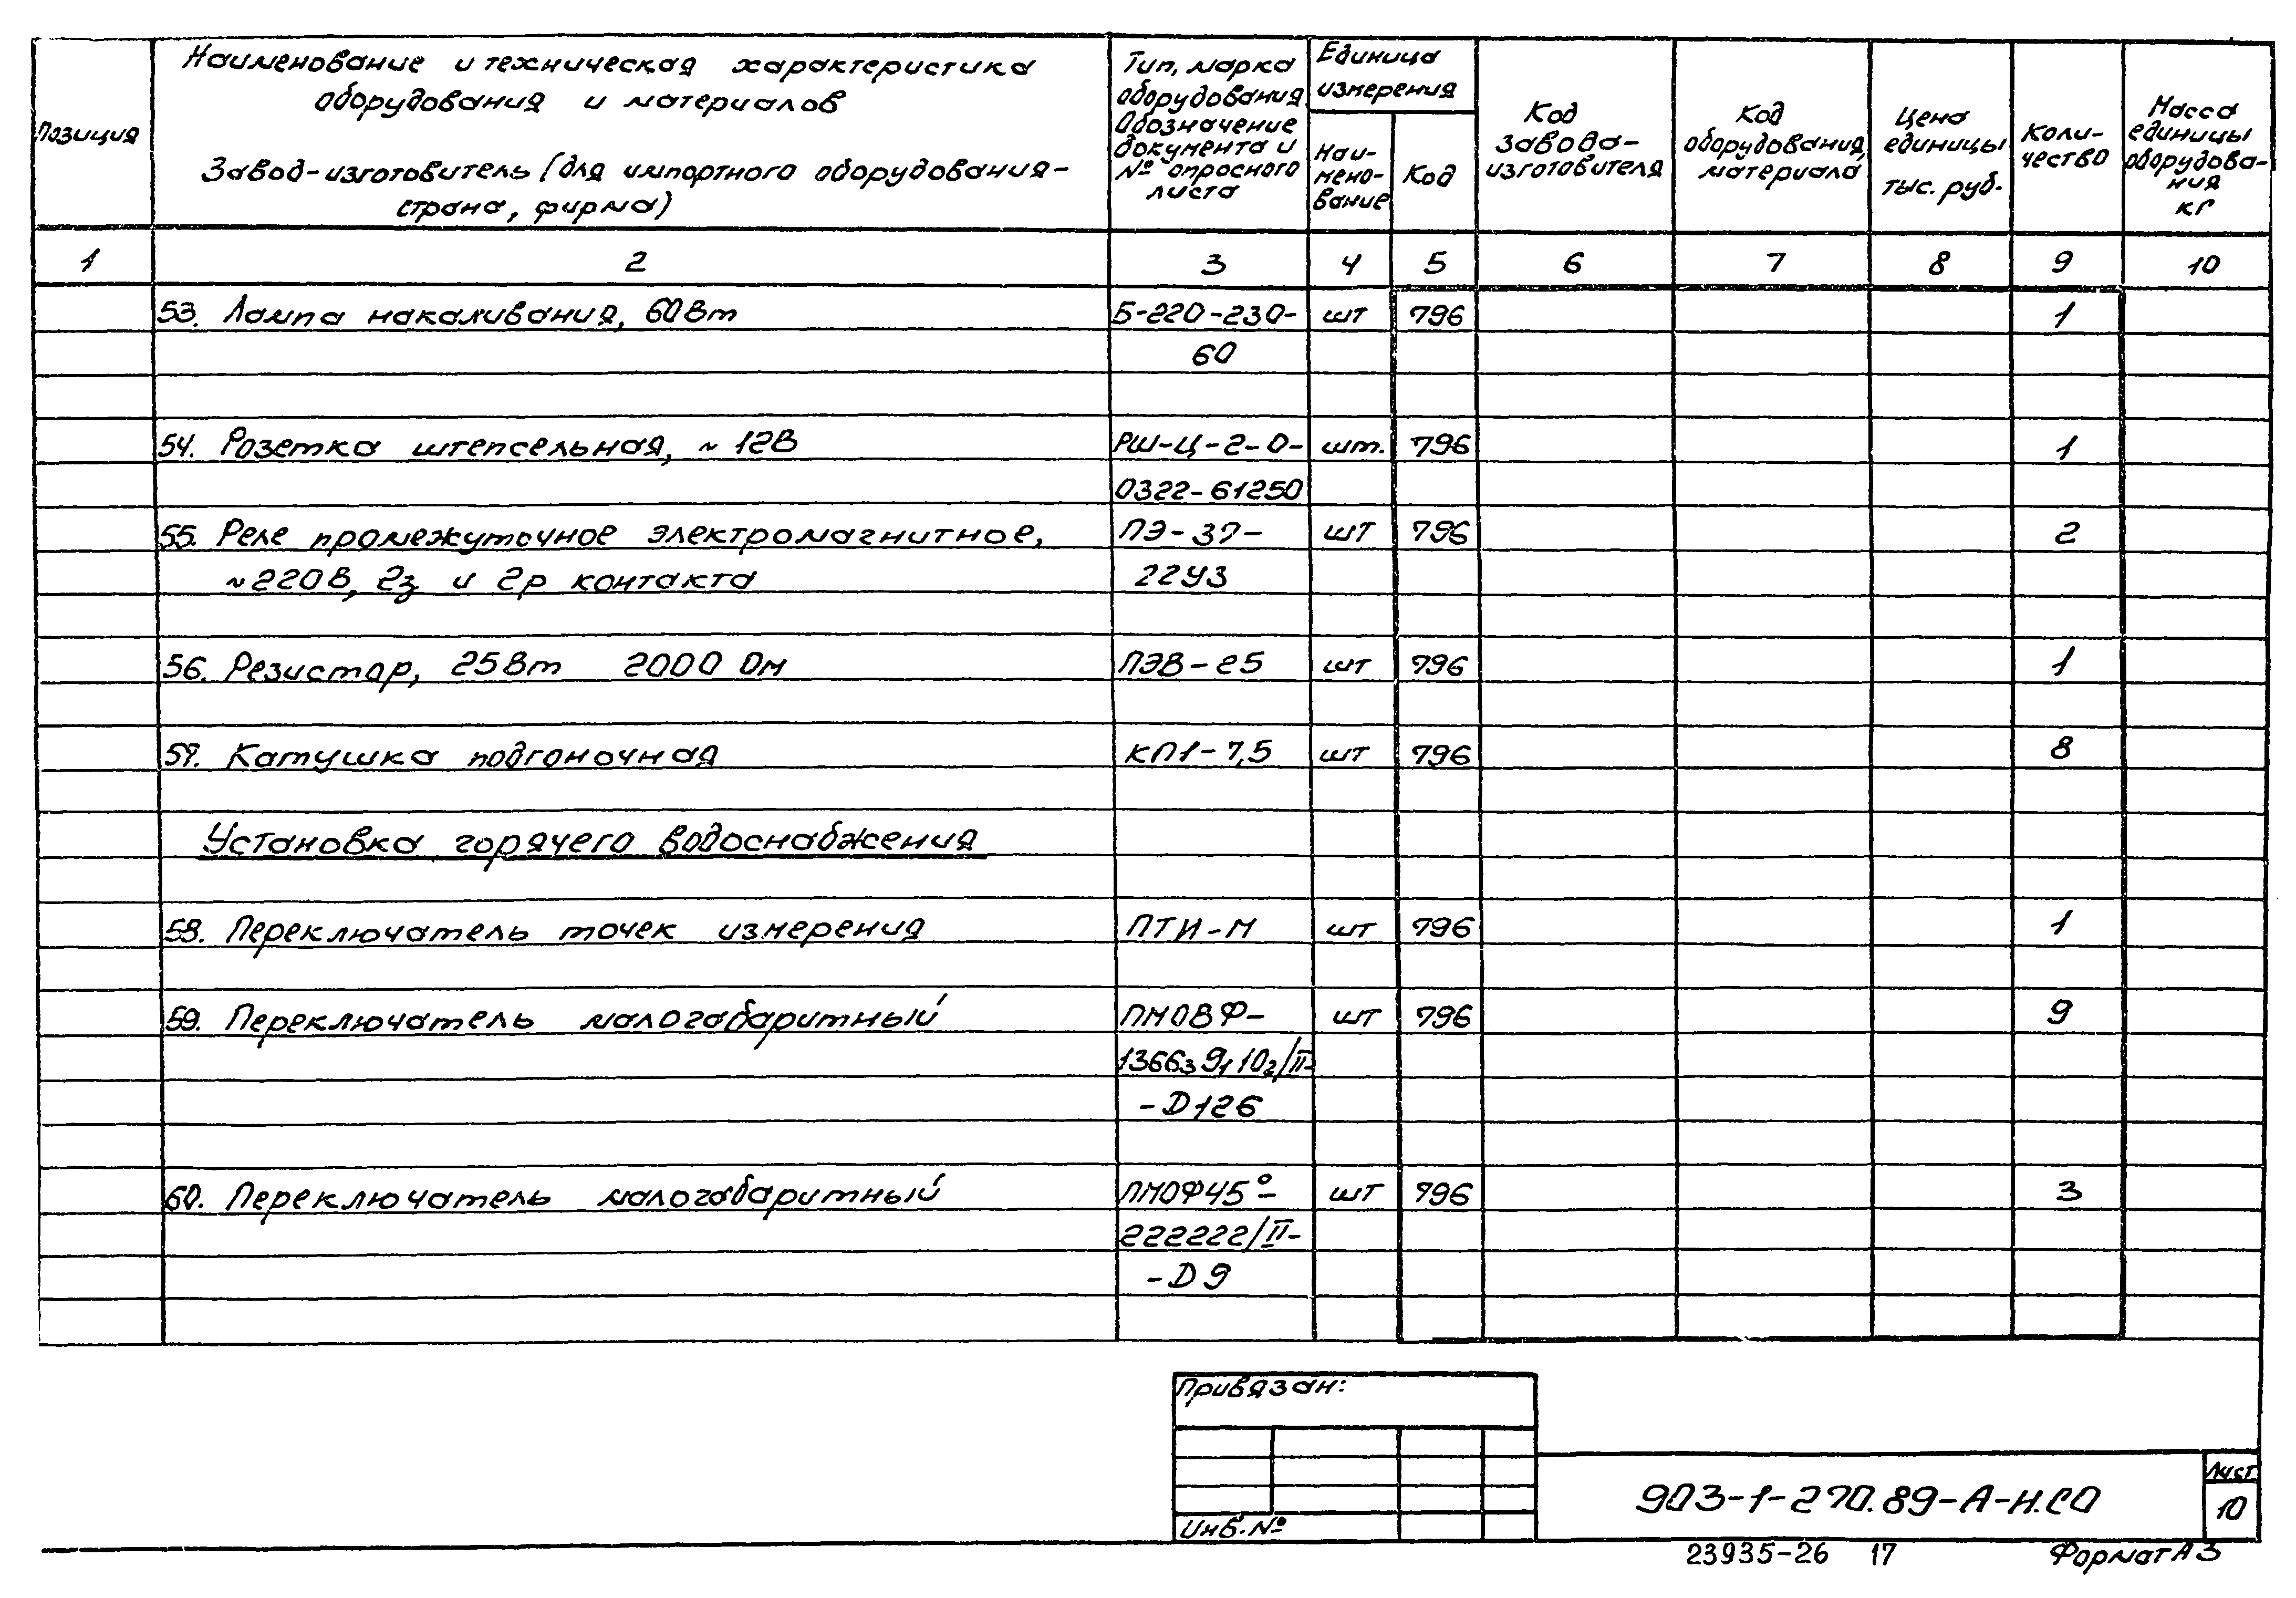 Позиция
Наименование и техническая характеристика
оборудования и материалов
Завод-изготовитель (для импортного оборудования-
страна, фирма)
Тип, марка
оборудования
Обозначение
документа и
№ опросного
листа
Единица
измерения
Наи-
мено-
вание
Код
Код
завода-
изготовителя
Код
оборудования,
материала
Цена
единицы
тыс. руб.
Коли-
чество
Масса
единицы
оборудова-
ния
кг
1 2 3 4 5 6 7 8 9 10
53. Лампа накаливания, 60Вт Б-220-230- шт 796 1
60
54. Розетка штепсельная, ~ 12В РШ-Ц-2-0- шт. 796 1
0322-61250
55. Реле промежуточное электромагнитное, ПЭ-37- шт 796 2
~220В, 2з и 2р контакта 22У3
56. Резистор, 25Вт 2000 Ом ПЭВ-25 шт 796 1
57. Катушка подгоночная КП1-7,5 шт 796 8
Установка горячего водоснабжения
58. Переключатель точек измерения ПТИ-М шт 796 1
59. Переключатель малогабаритный ПМОВФ- шт 796 9
1366₃9₁10₂/II-
-D126
60. Переключатель малогабаритный ПМОФ45°- шт 796 3
222222/II-
-D9
Привязан:
Инв.№
903-1-270.89-А-Н.СО
Лист
10
23935-26 17 Формат А3